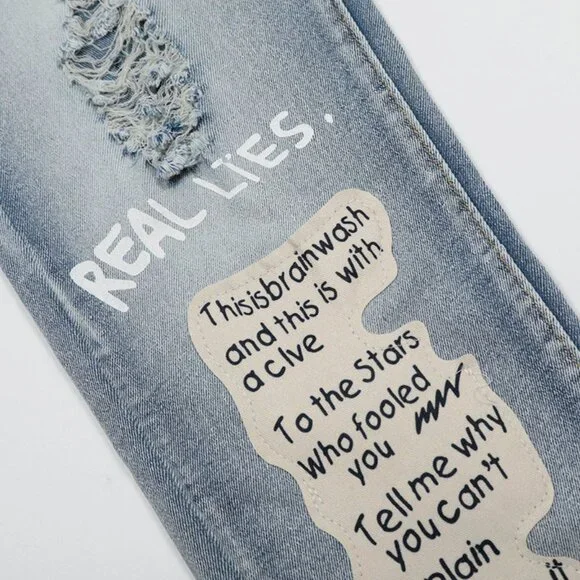 REAL LÏES.
Thisisbrainwash
and this is with
a clve
To the Stars
Who fooled
you
Tell me why
you can't
plain
it